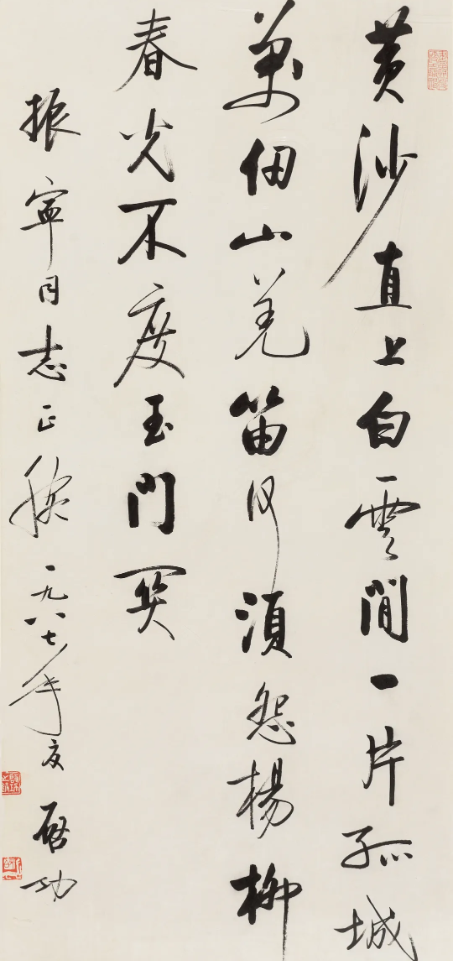 黄沙直上白雲間一片孤城
萬仞山羌笛何須怨楊柳
春光不度玉門関
振寧同志正腕一九八七年夏啓功